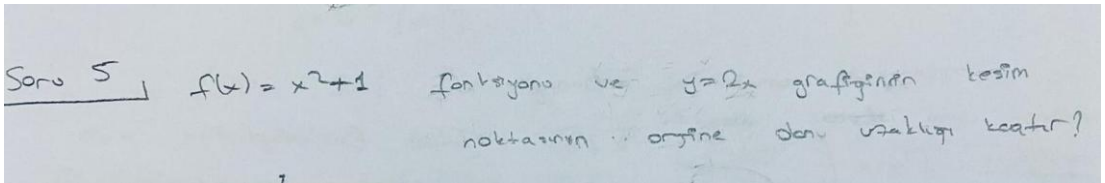 Soru 5) f(x) = x²+1 fonksiyonu ve y=2x grafiğinin kesim
noktasının orjine olan uzaklığı kaçtır?